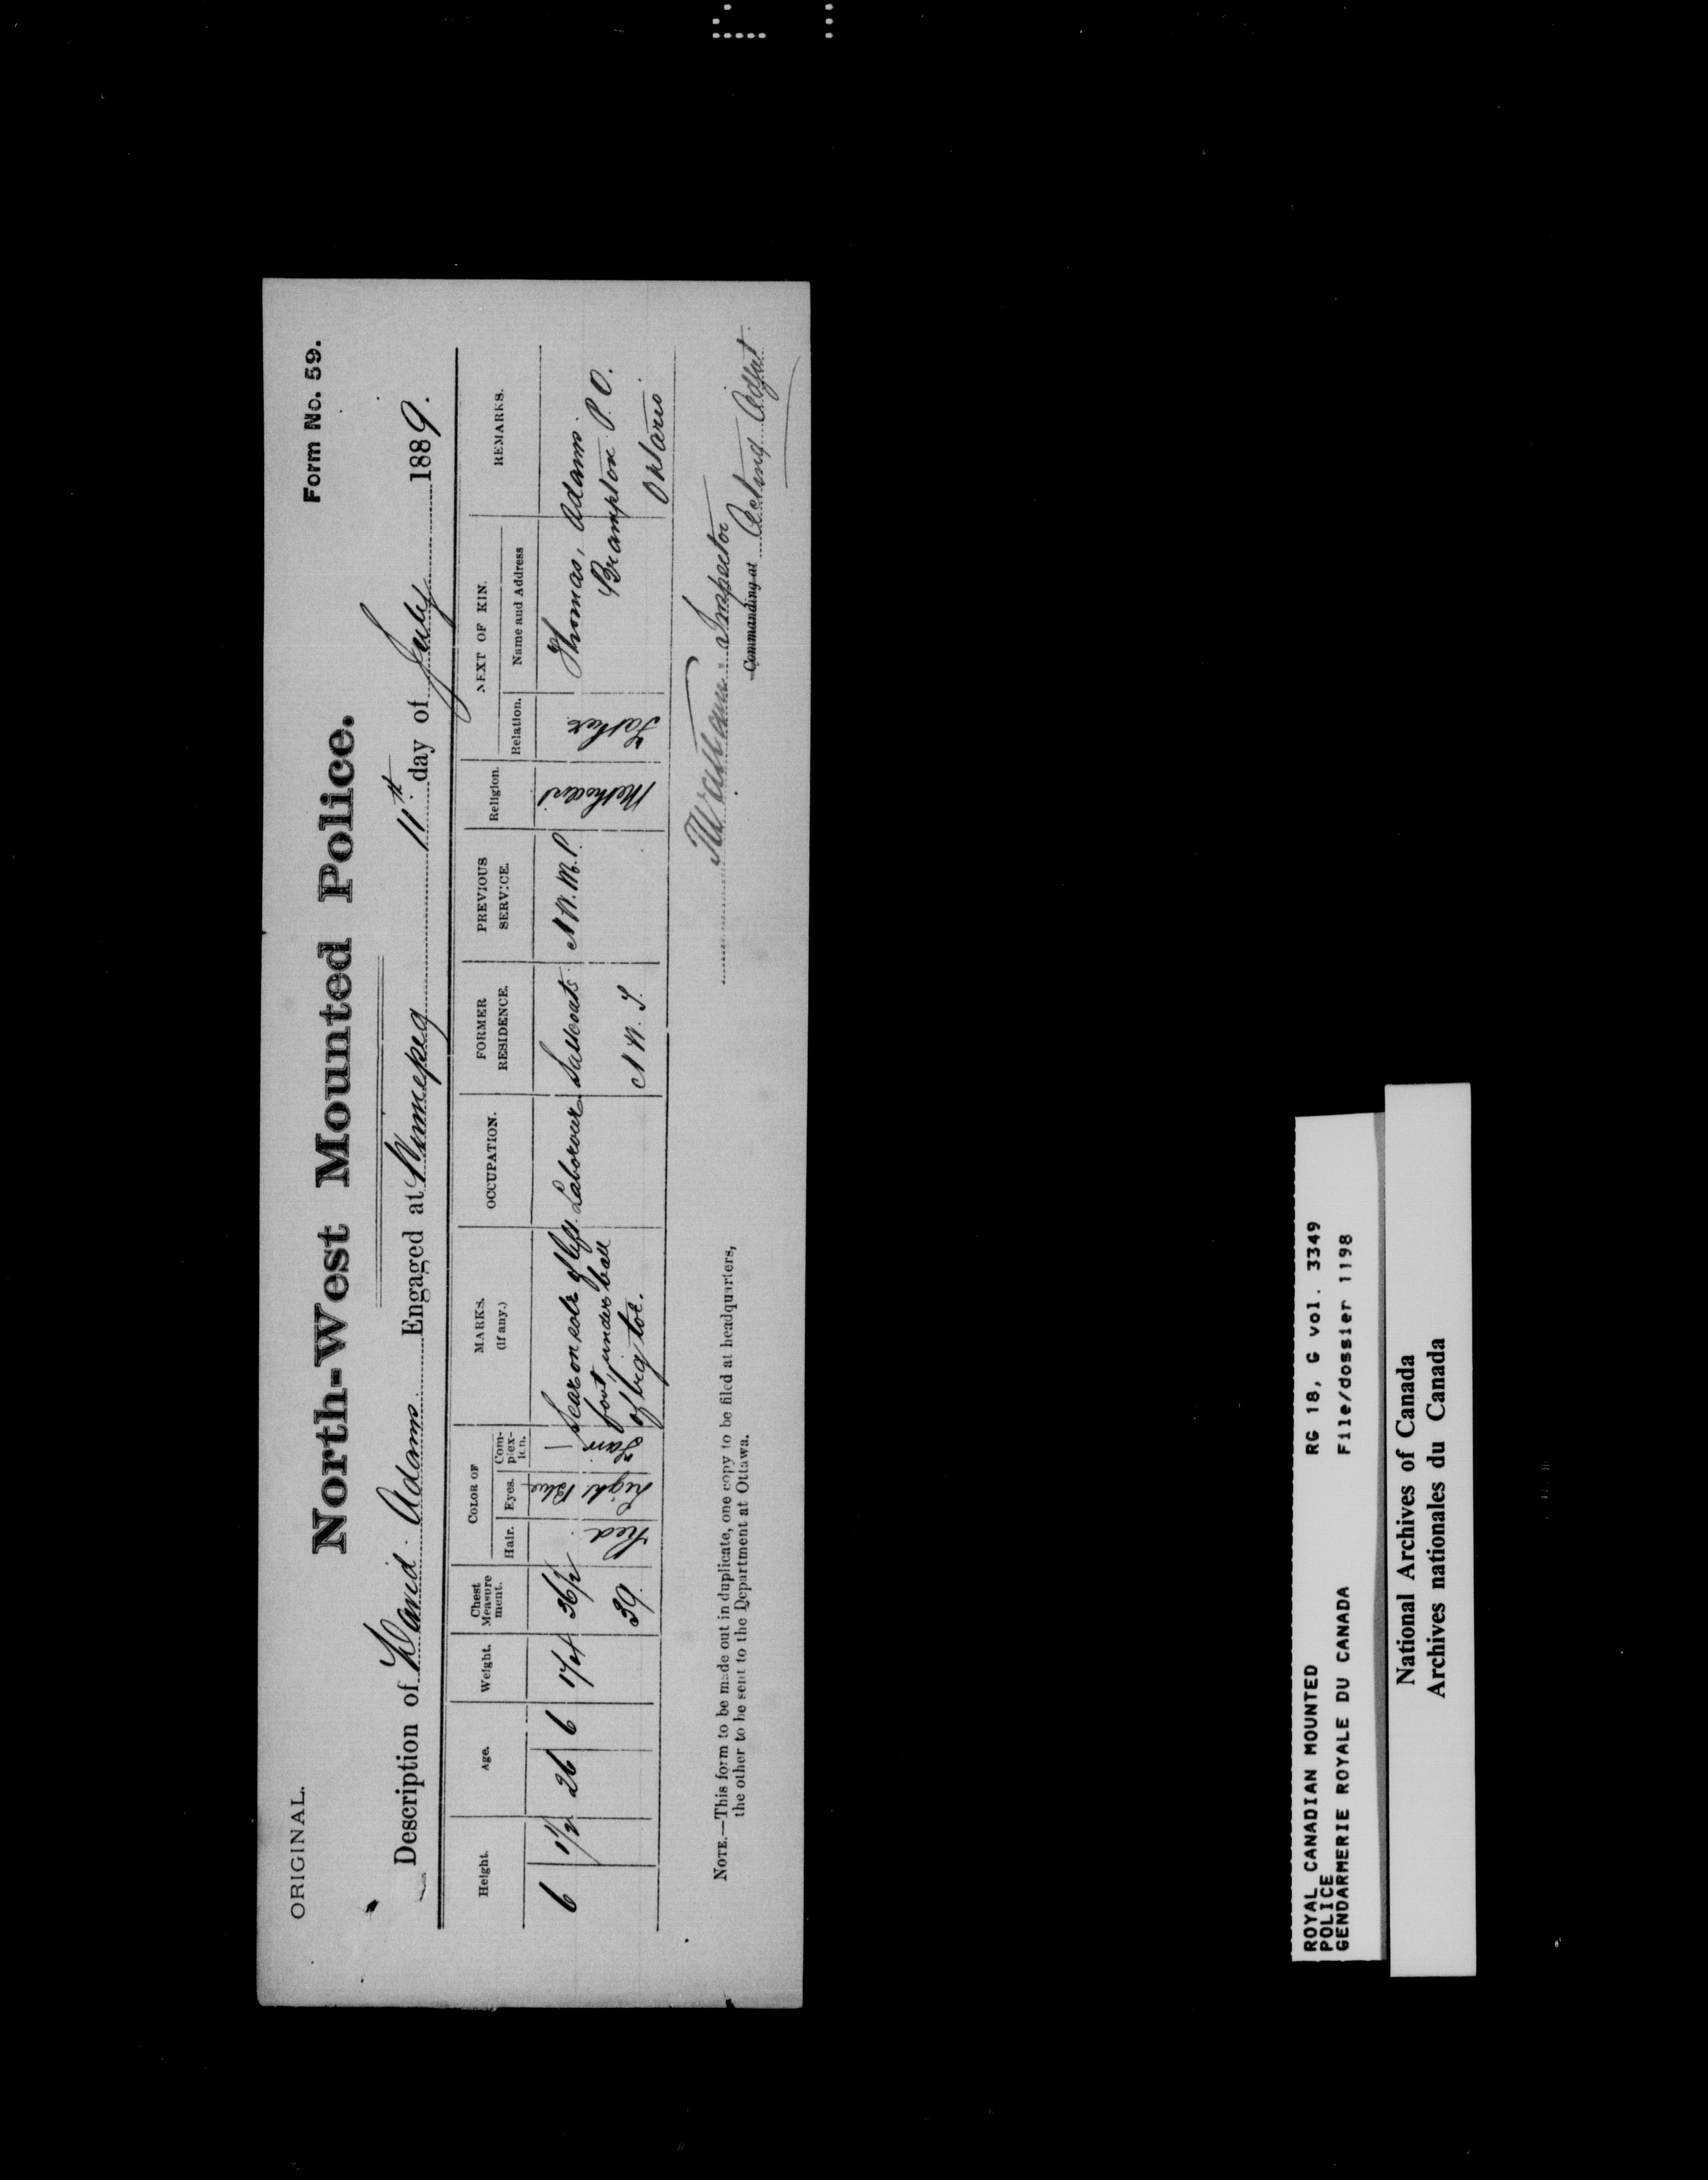 ORIGINAL.
Form No. 59.
North-West Mounted Police.
Description of David Adams Engaged at Winnepeg 11th day of July 1889.
Height. Age. Weight. Chest Measure ment. COLOR OF Hair. Eyes. Com- plex- ion. MARKS. (If any.) OCCUPATION. FORMER RESIDENCE. PREVIOUS SERVICE. Religion. NEXT OF KIN. Relation. Name and Address REMARKS.
6 1½ 26 6 174 36½ Red Light Blue Fair Scar on sole of left Labourer Saltcoats N.W.M.P. Methodist Father Thomas, Adams.
foot, under ball Brampton P.O.
39. of big toe. N.W.T. Ontario
Inspector
Commanding at Acting Adjut.
NOTE.—This form to be made out in duplicate, one copy to be filed at headquarters,
the other to be sent to the Department at Ottawa.
ROYAL CANADIAN MOUNTED RG 18, G vol. 3349
POLICE
GENDARMERIE ROYALE DU CANADA File/dossier 1198
National Archives of Canada
Archives nationales du Canada